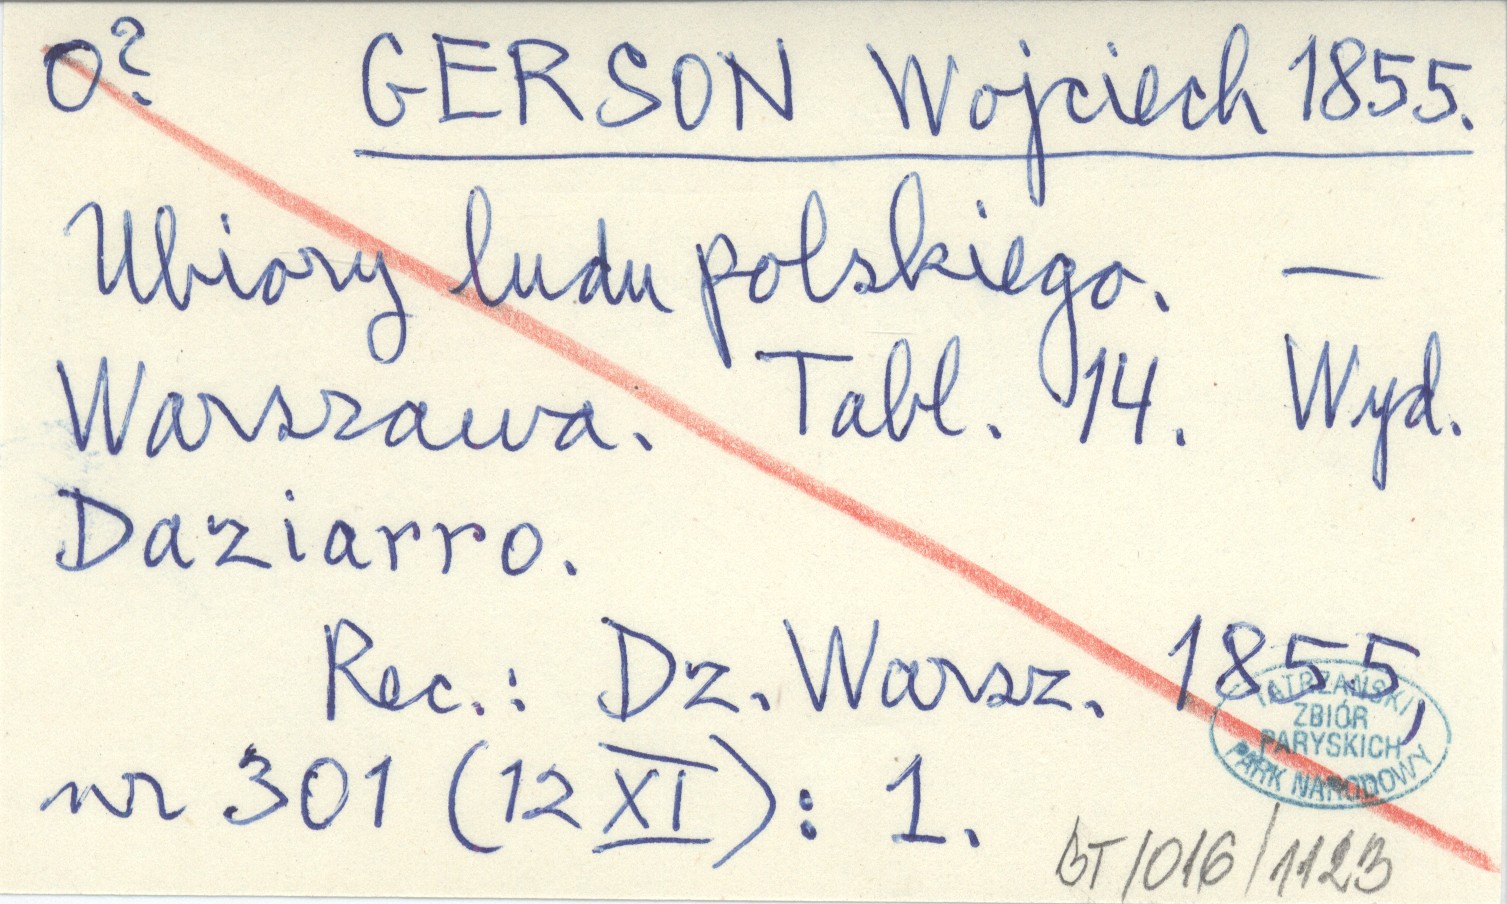 0? GERSON Wojciech 1855.
Ubiory ludu polskiego. —
Warszawa. Tabl. 14. Wyd.
Daziarro.
Rec.: Dz. Warsz. 1855,
nr 301 (12 XI): 1.
TATRZAŃSKI
ZBIÓR
PARYSKICH
PARK NARODOWY
BT/016/1123